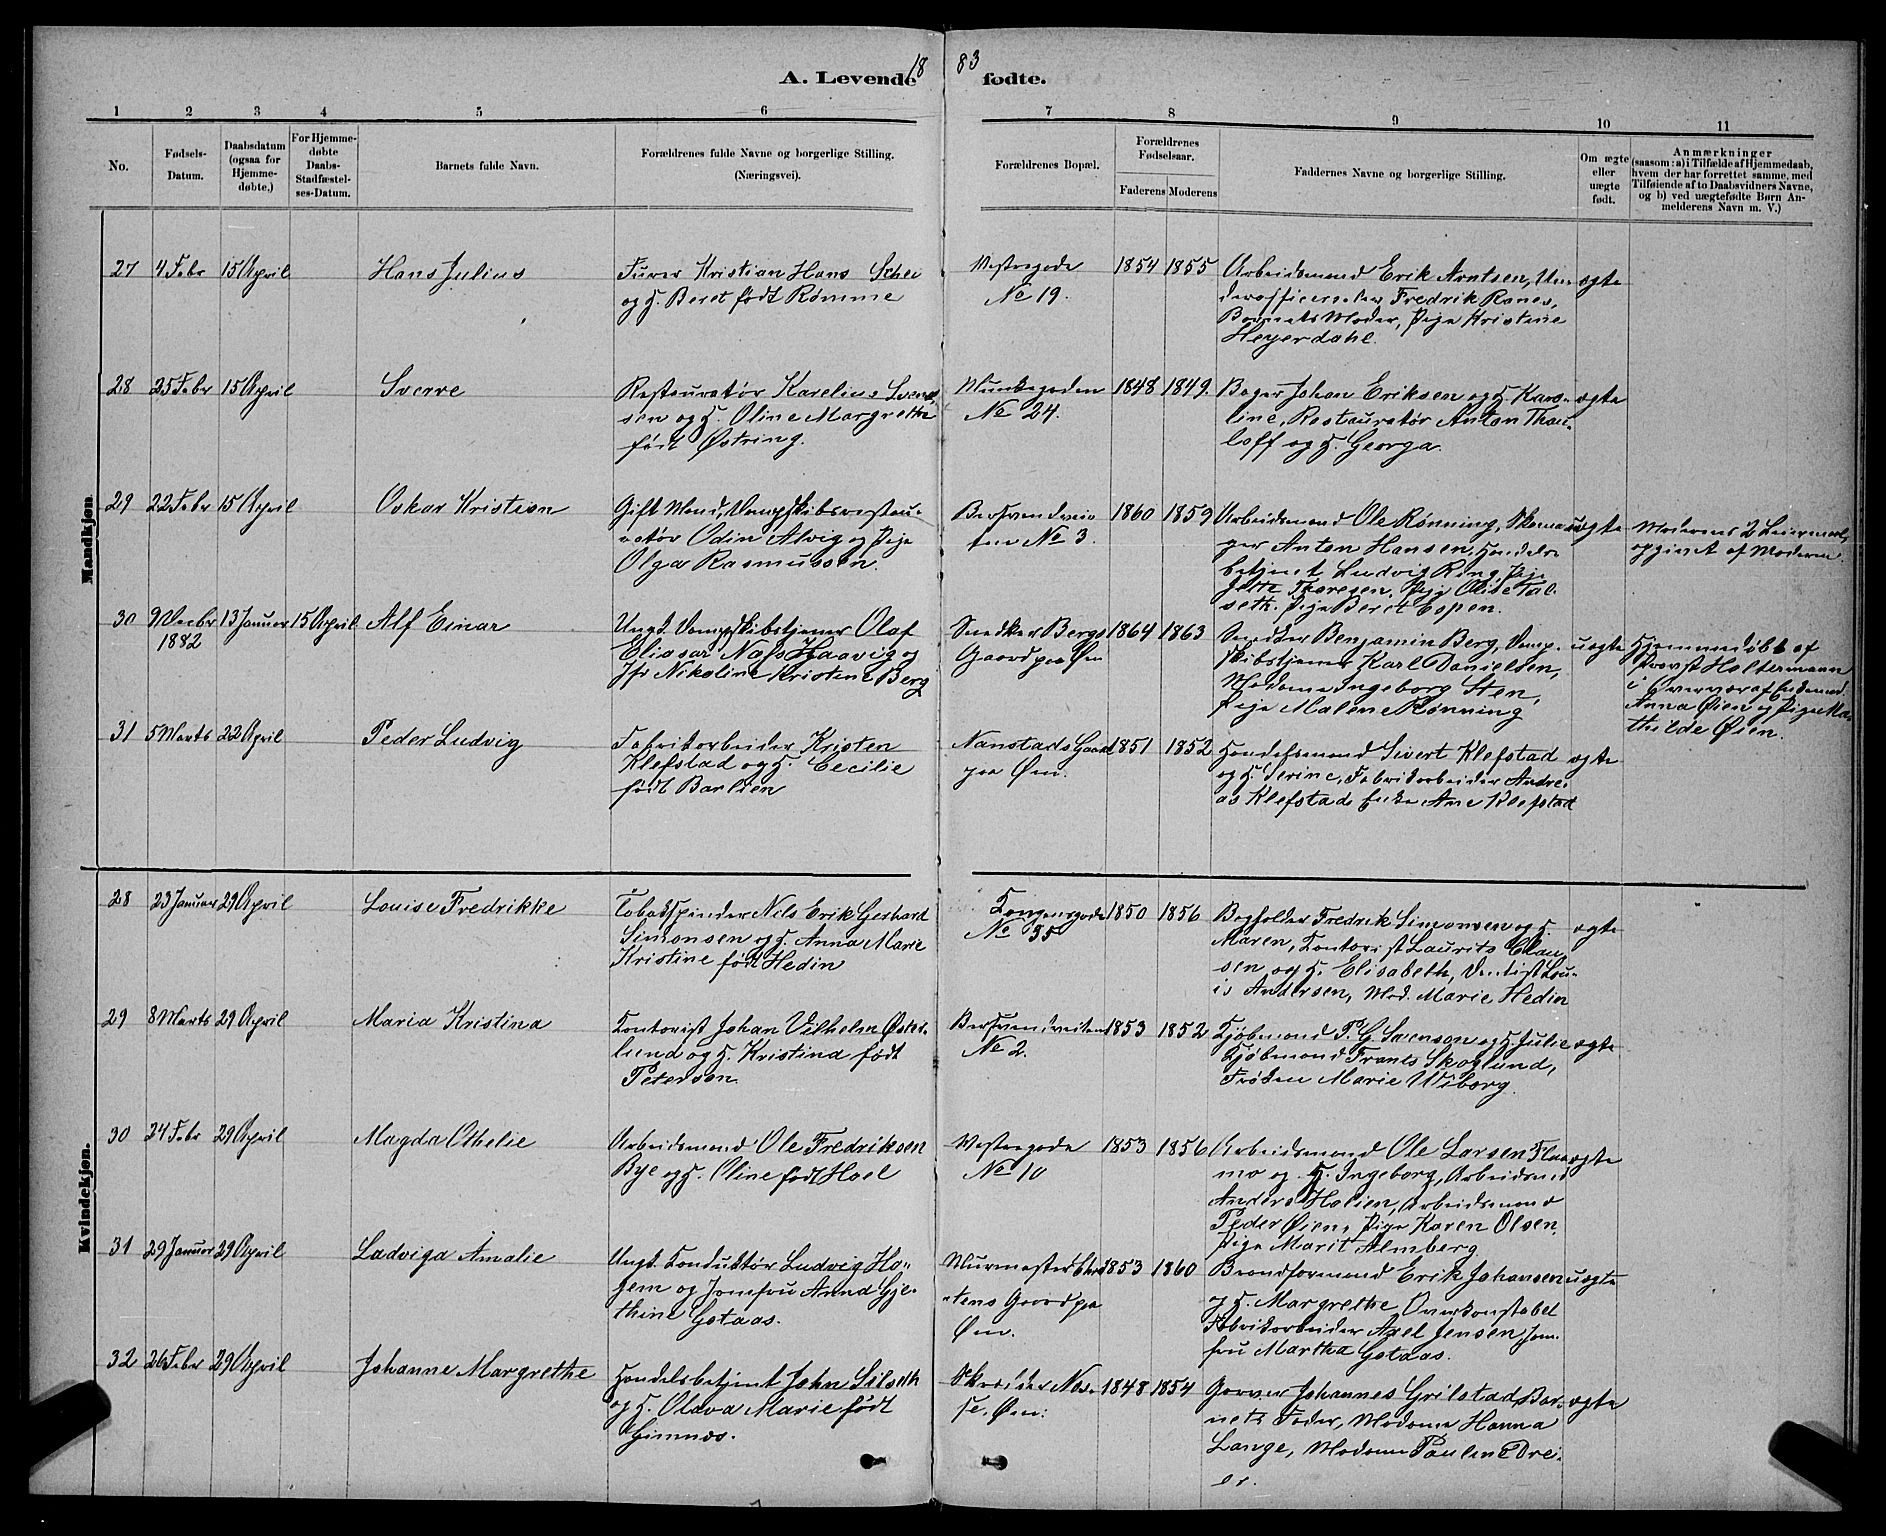 1883
A. Levende fødte.
1 2 3 4 5 6 7 8 9 10 11
No.
Fødsels-
Datum.
Daabsdatum
(ogsaa for
Hjemme-
døbte.)
For Hjemme-
døbte
Daabs-
Stadfæstel-
ses-Datum.
Barnets fulde Navn.
Forældrenes fulde Navne og borgerlige Stilling.
(Næringsvei).
Forældrenes Bopæl.
Forældrenes
Fødselsaar.
Faderens Moderens
Faddernes Navne og borgerlige Stilling.
Om ægte
eller
uægte
født.
Anmærkninger
(saasom: a) i Tilfælde af Hjemmedaab,
hvem der har forrettet samme, med
Tilføiende af to Daabsvidners Navne,
og b) ved uægtefødte Børn An-
melderens Navn m. V.)
Mandkjøn
27 4 Febr 15 April
Hans Julius
Furer Kristian Hans Schei
og H. Beret født Rømme
Vestregade
No 19.
1854 1855
Arbeidsmand Erik Arntsen, Un-
derofficerselev Fredrik Ranes,
Barnets Moder, Pige Kristine
Heyerdahl.
ægte
28 25 Febr 15 April
Sverre
Restauratør Karelius Svend-
sen og H. Oline Margrethe
født Østring.
Munkegaden
No 24.
1848 1849.
Bager Johan Eriksen og H. Karo-
line, Restauratør Anton Thau-
loff og H. Georga.
ægte
29 22 Febr 15 April
Oskar Kristian
Gift Mand, Dampskibsrestau-
ratør Odin Alvig og Pige
Olga Rasmussen.
Bersvendvei-
ten No 3.
1860 1859
Arbeidsmand Ole Rønning, Skoma-
ger Anton Hansen, Handels-
betjent Ludvig Ring, Pige
Jette Thoresen, Pige Oline Tal-
seth, Pige Beret Espen.
uægte
Moderens 2 Leiermaal,
opgivet af Moderen.
30 9 Decbr 1882 13 Januar 15 April
Alf Einar
Ungk. Dampskibstjener Olaf
Eliasar Næss Haavig og
Jfr Nikoline Kristine Berg
Snedker Bergs
Gaard paa Øen
1864 1863
Snedker Benjamin Berg, Damp-
skibstjener Karl Danielsen,
Madame Ingeborg Sten,
Pige Malene Rønning
uægte
Hjemmedøbt af
Provst Holtermann
i Overvær af Enkemad.
Anna Øien og Pige Ma-
thilde Øien.
31 5 Marts 22 April
Peder Ludvig
Fabrikarbeider Kristen
Klefstad og H. Cecilie
født Barlien
Nanstads Gaard
paa Øen.
1851 1852
Handelsmand Sivert Klefstad
og H. Serine, Fabrikarbeider Andre-
as Klefstad, Enke Ane Klefstad
ægte
Kvindekjøn.
28 23 Januar 29 April
Louise Fredrikke
Tobakspinder Nils Erik Gerhard
Simonsen og H. Anna Marie
Kristine født Hedin
Kongensgade
No 35
1850 1856
Bogholder Fredrik Simonsen og H.
Maren, Kontorist Laurits Clau-
sen og H. Elisabeth, Dentist Lou-
is Andersen, Mad. Marie Hedin
ægte
29 8 Marts 29 April
Maria Kristina
Kontorist Johan Vilhelm Øster-
lund og H. Kristina født
Peterson
Bersvendveiten
No 2.
1853 1852
Kjøbmand P. G. Svenson og H. Julie
Kjøbmand Frants Skoglund,
Frøken Marie Wiborg.
ægte
30 24 Febr 29 April
Magda Othelie
Arbeidsmand Ole Fredriksen
Bye og H. Oline født Hoel
Vestregade
No 10
1853 1856
Arbeidsmand Ole Larsen Flaa-
mo og H. Ingeborg, Arbeidsmd
Anders Halien, Arbeidsmand
Peder Øien, Pige Karen Olsen,
Pige Marit Almberg.
ægte
31 29 Januar 29 April
Ludviga Amalie
Ungk. Konduktør Ludvig Ho-
jem og Jomfru Anna Gje-
thine Gotaas.
Murmester
Gaard paa
Øen.
1853 1860
Brandformand Erik Johansen
og H. Margrethe, Overkonstabel
Fabrikarbeider Axel Jensen, Jom-
fru Martha Gotaas.
uægte
32 26 Febr 29 April
Johanne Margrethe
Handelsbetjent John Silseth
og H. Olava Marie født
Gimnæs.
Skræder Næs-
se, Øen.
1848 1854
Garver Johannes Grilstad, Bar-
nets Fader, Madame Hanna
Lange, Madame Pauline Drei-
er.
ægte